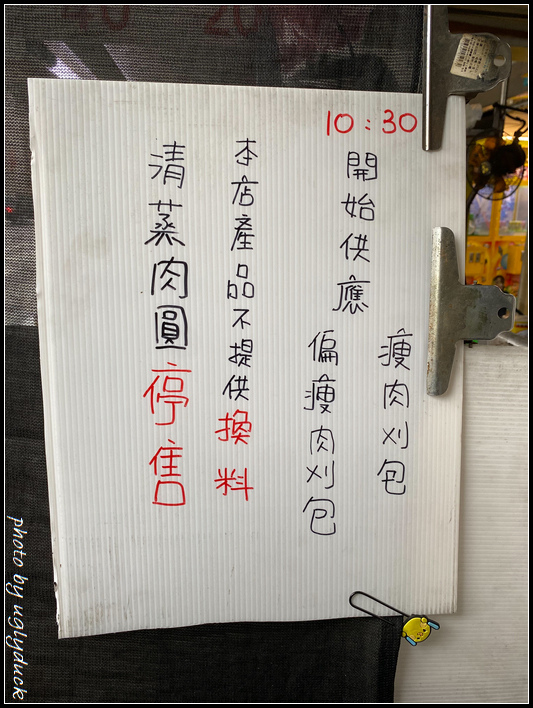 10:30
開始供應
瘦肉刈包
偏瘦肉刈包
本店產品不提供換料
清蒸肉圓停售
photo by uglyduck